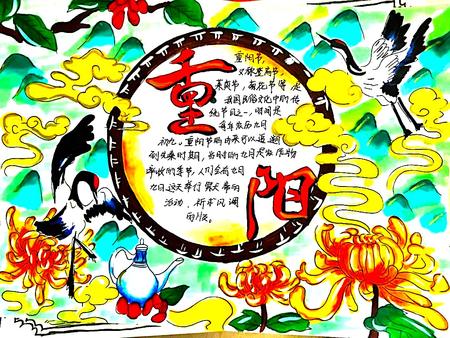 重阳
重阳节，
又称登高节，
茱萸节，菊花节等，是
我国民俗文化中的传
统节日之一，时间是
每年农历九月
初九。重阳节的由来可以追溯
到先秦时期，当时的九月是农作物
季收的季节，人们会在九月
九日这天举行祭天帝的
活动，祈求风调
雨顺。